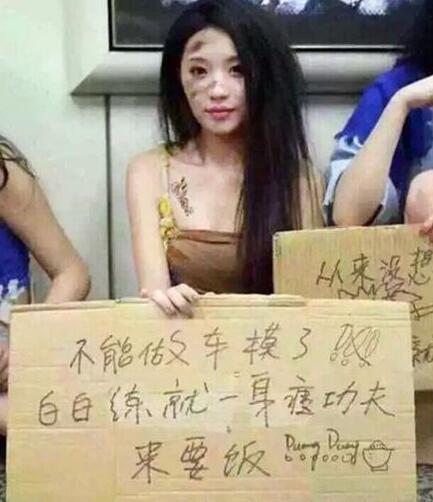 不能做车模了!!!
白白练就一身瘦功夫
来要饭 Duang Duang
从来没想